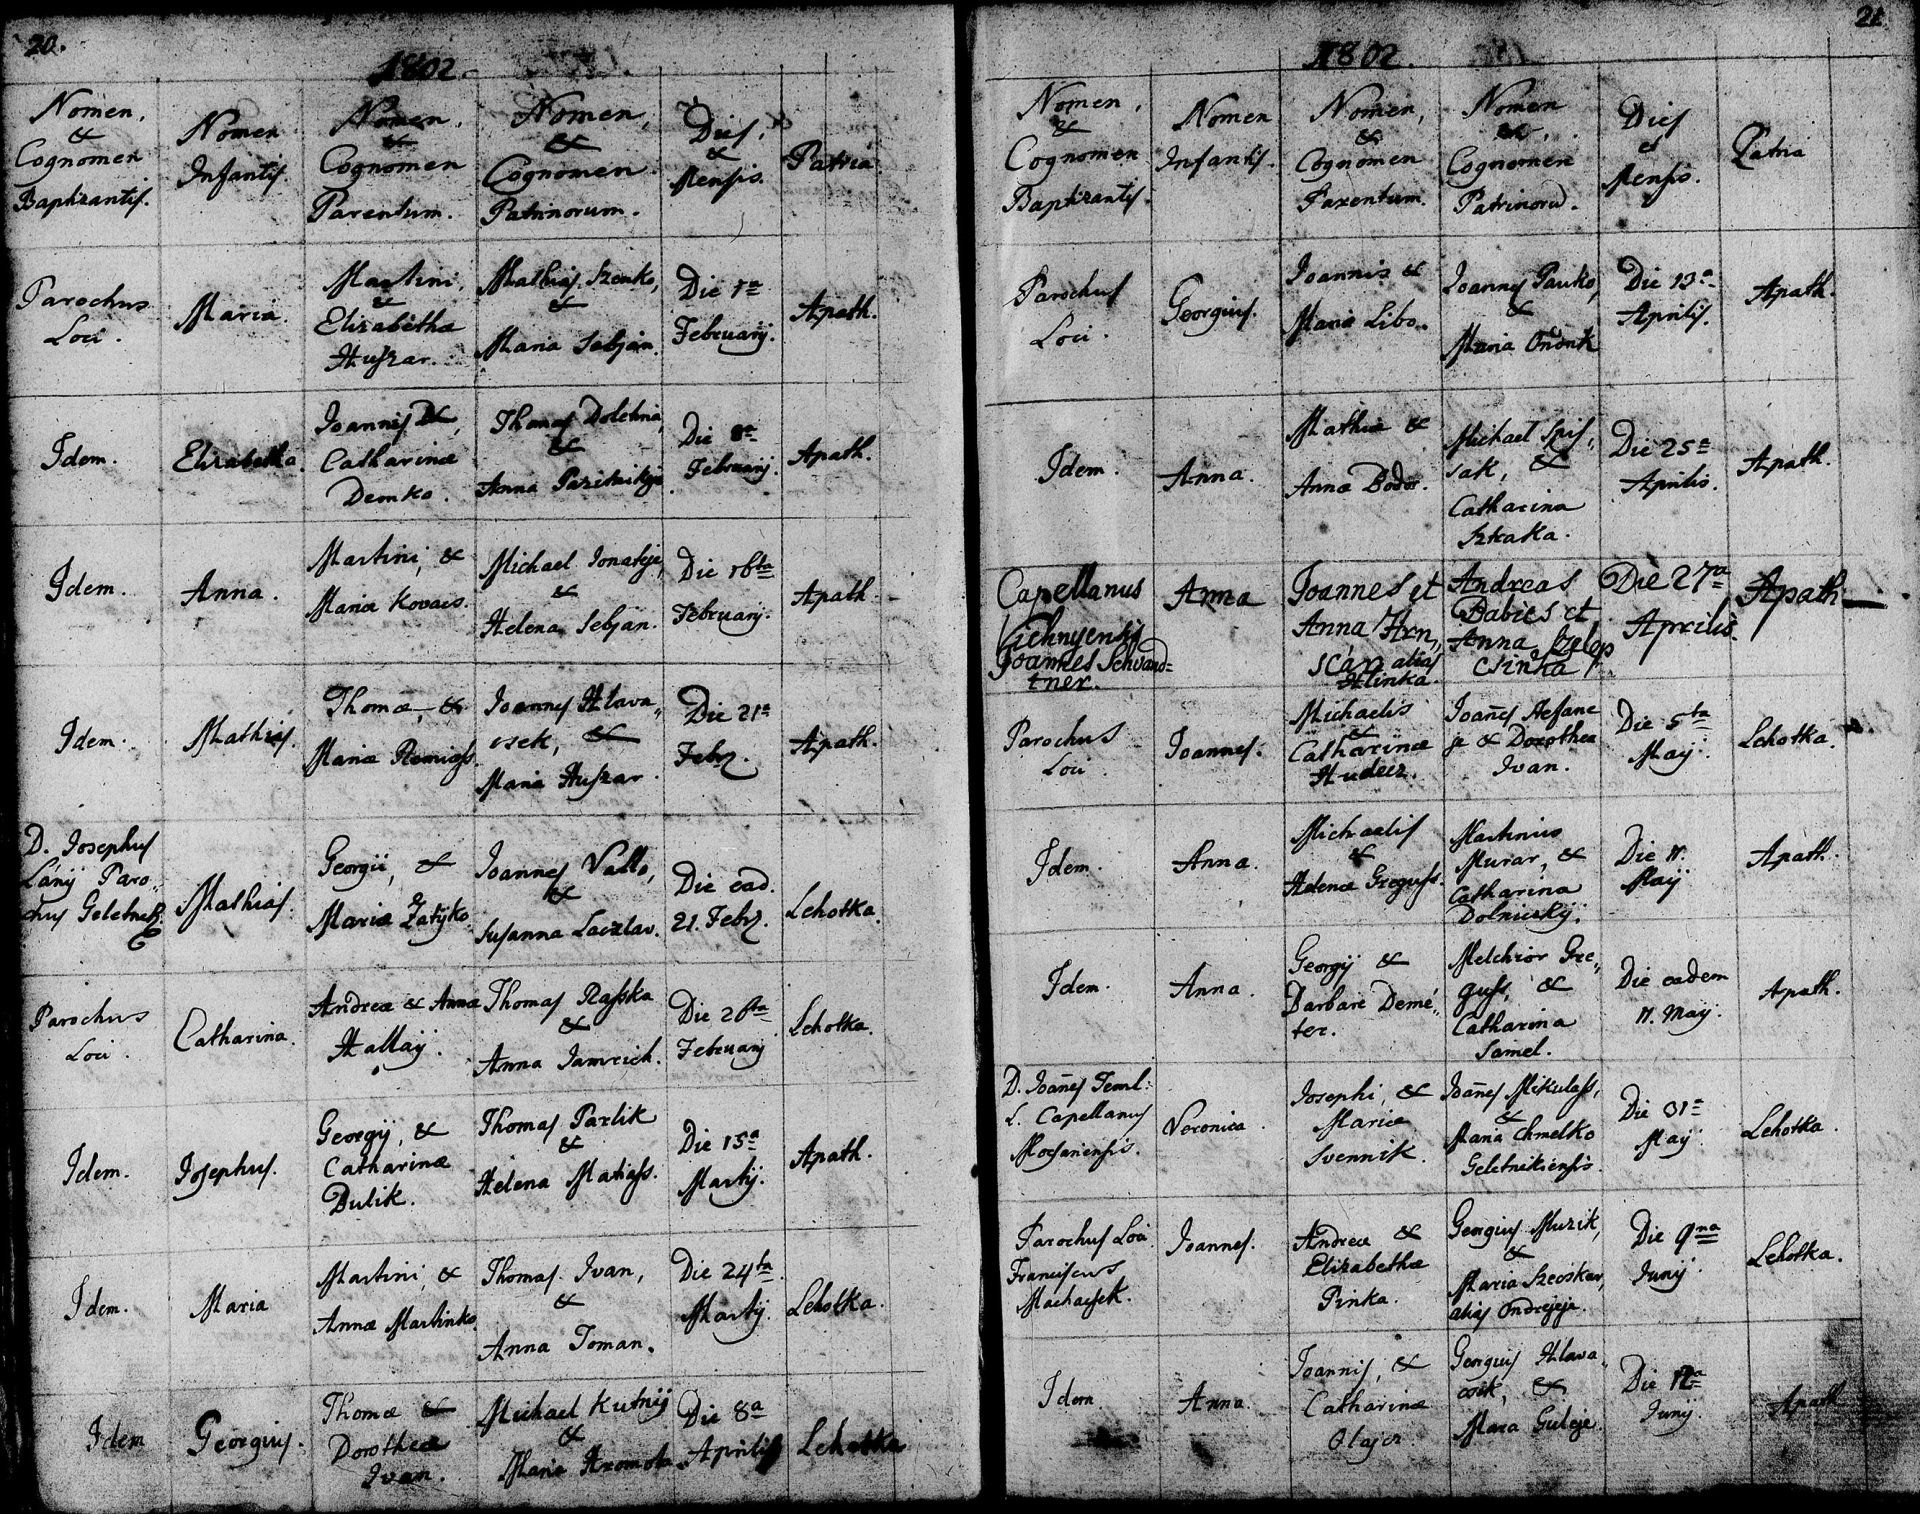 20.
1802.
Nomen,
&
Cognomen
Baptizantis.
Nomen
Infantis.
Nomen,
&
Cognomen
Parentum.
Nomen,
&
Cognomen
Patrinorum.
Dies,
&
Mensis.
Patria.
Parochus
Loci.
Maria.
Martini,
&
Elizabethæ
Huszar.
Mathias Szenko,
&
Maria Sebjan.
Die 1a
Februarij.
Apath.
Idem.
Elizabetha.
Joannis &,
Catharinæ
Demko.
Thomas Doletina,
&
Anna
Die 8a
Februarij.
Apath.
Idem.
Anna.
Martini, &
Mariæ Kovacs.
Michael
&
Helena Sebjan.
Die 16ta
Februarij.
Apath.
Idem.
Mathias.
Thomæ, &
Mariæ Remiass.
Joannes Hlava„
csek, &
Maria Huszar.
Die 21a
Febr.
Apath.
D. Josephus
Lánij Paro„
chus
Mathias.
Georgii, &
Mariæ Zatyko.
Joannes Vallo,
&
Susanna Laczlav.
Die ead.
21. Febr.
Lehotka.
Parochus
Loci.
Catharina.
Andreæ & Annæ
Hallaÿ.
Thomas Rasska
&
Anna Jamrich.
Die 26ta
Februarij
Lehotka.
Idem.
Josephus.
Georgij, &
Catharinæ
Dulik.
Thomas Pazlik
&
Helena Matiass.
Die 15a
Martij.
Apath.
Idem.
Maria
Martini, &
Annæ Martinko.
Thomas Ivan,
&
Anna Toman.
Die 24ta
Martij.
Lehotka.
Idem
Georgius.
Thomæ &
Dorotheæ
Ivan.
Michael Kutnij
&
Maria Hromota
Die 8a
Aprilis
Lehotka
21
1802.
Nomen,
&
Cognomen
Baptizantis.
Nomen
Infantis.
Nomen,
&
Cognomen
Parentum.
Nomen
&,
Cognomen
Patrinorū.
Dies
et
Mensis.
Patria
Parochus
Loci.
Georgius.
Joannis &
Mariæ Libo..
Joannes Pauko,
&
Maria
Die 13a
Aprilis.
Apath.
Idem.
Anna.
Mathiæ &
Annæ Bodor.
Michael Spis„
sak, &
Catharina
Szkaka.
Die 25a
Aprilis.
Apath.
Capellanus
Vichnyensis
Joannes Schvand=
tner.
Anna
Joannes et
Anna Hrn„
scár alias
Hlinka.
Andreas
Babics et
Anna Szelep
csinka
Die 27a
Aprilis.
Apath
Parochus
Loci
Joannes.
Michaelis
&
Catharinæ
Hudecz.
Joañes Stefane
je & Dorothea
Ivan.
Die 5ta
Maij.
Lehotka.
Idem.
Anna.
Michaelis
&
Helenæ Greguss.
Martinus
Murar, &
Catharina
Dolniczkÿ.
Die 11.
Maij
Apath.
Idem.
Anna.
Georgij &
Barbare Deme„
ter.
Melchior Gre„
guss, &
Catharina
Samel.
Die eadem
11. Maij.
Apath.
D. Joañes Teml:
L. Capellanus
Mocsariensis.
Veronica.
Josephi, &
Mariæ
Svennik.
Joañes Mikulass,
&
Maria Chmelko
Geletnikiensis.
Die 31a
Maij.
Lehotka.
Parochus Loci
Franciscus
Machacsek.
Joannes.
Andreæ &
Elizabethæ
Pinka.
Georgius Muzik,
&
Maria Szeoskar,
alias Ondrejeje.
Die 9na
Junij
Lehotka.
Idem.
Anna.
Joannis, &
Catharinæ
Olajos.
Georgius Hlava„
csik, &
Maria Guleje.
Die 12a
Junij.
Apath